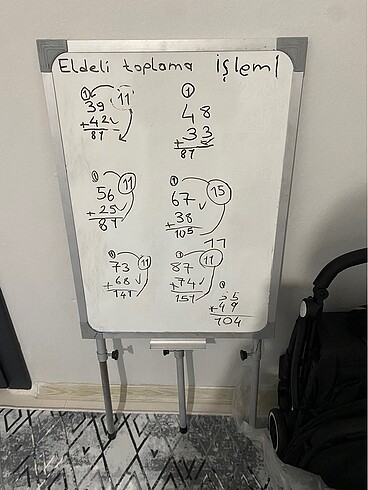 Eldeli toplama işlemi
1 11
39
+42
81
1
48
+33
81
1 11
56
+25
81
1 15
67
+38
105
1 11
73
+68
141
1 11
87
+74
151
1
55
+49
104